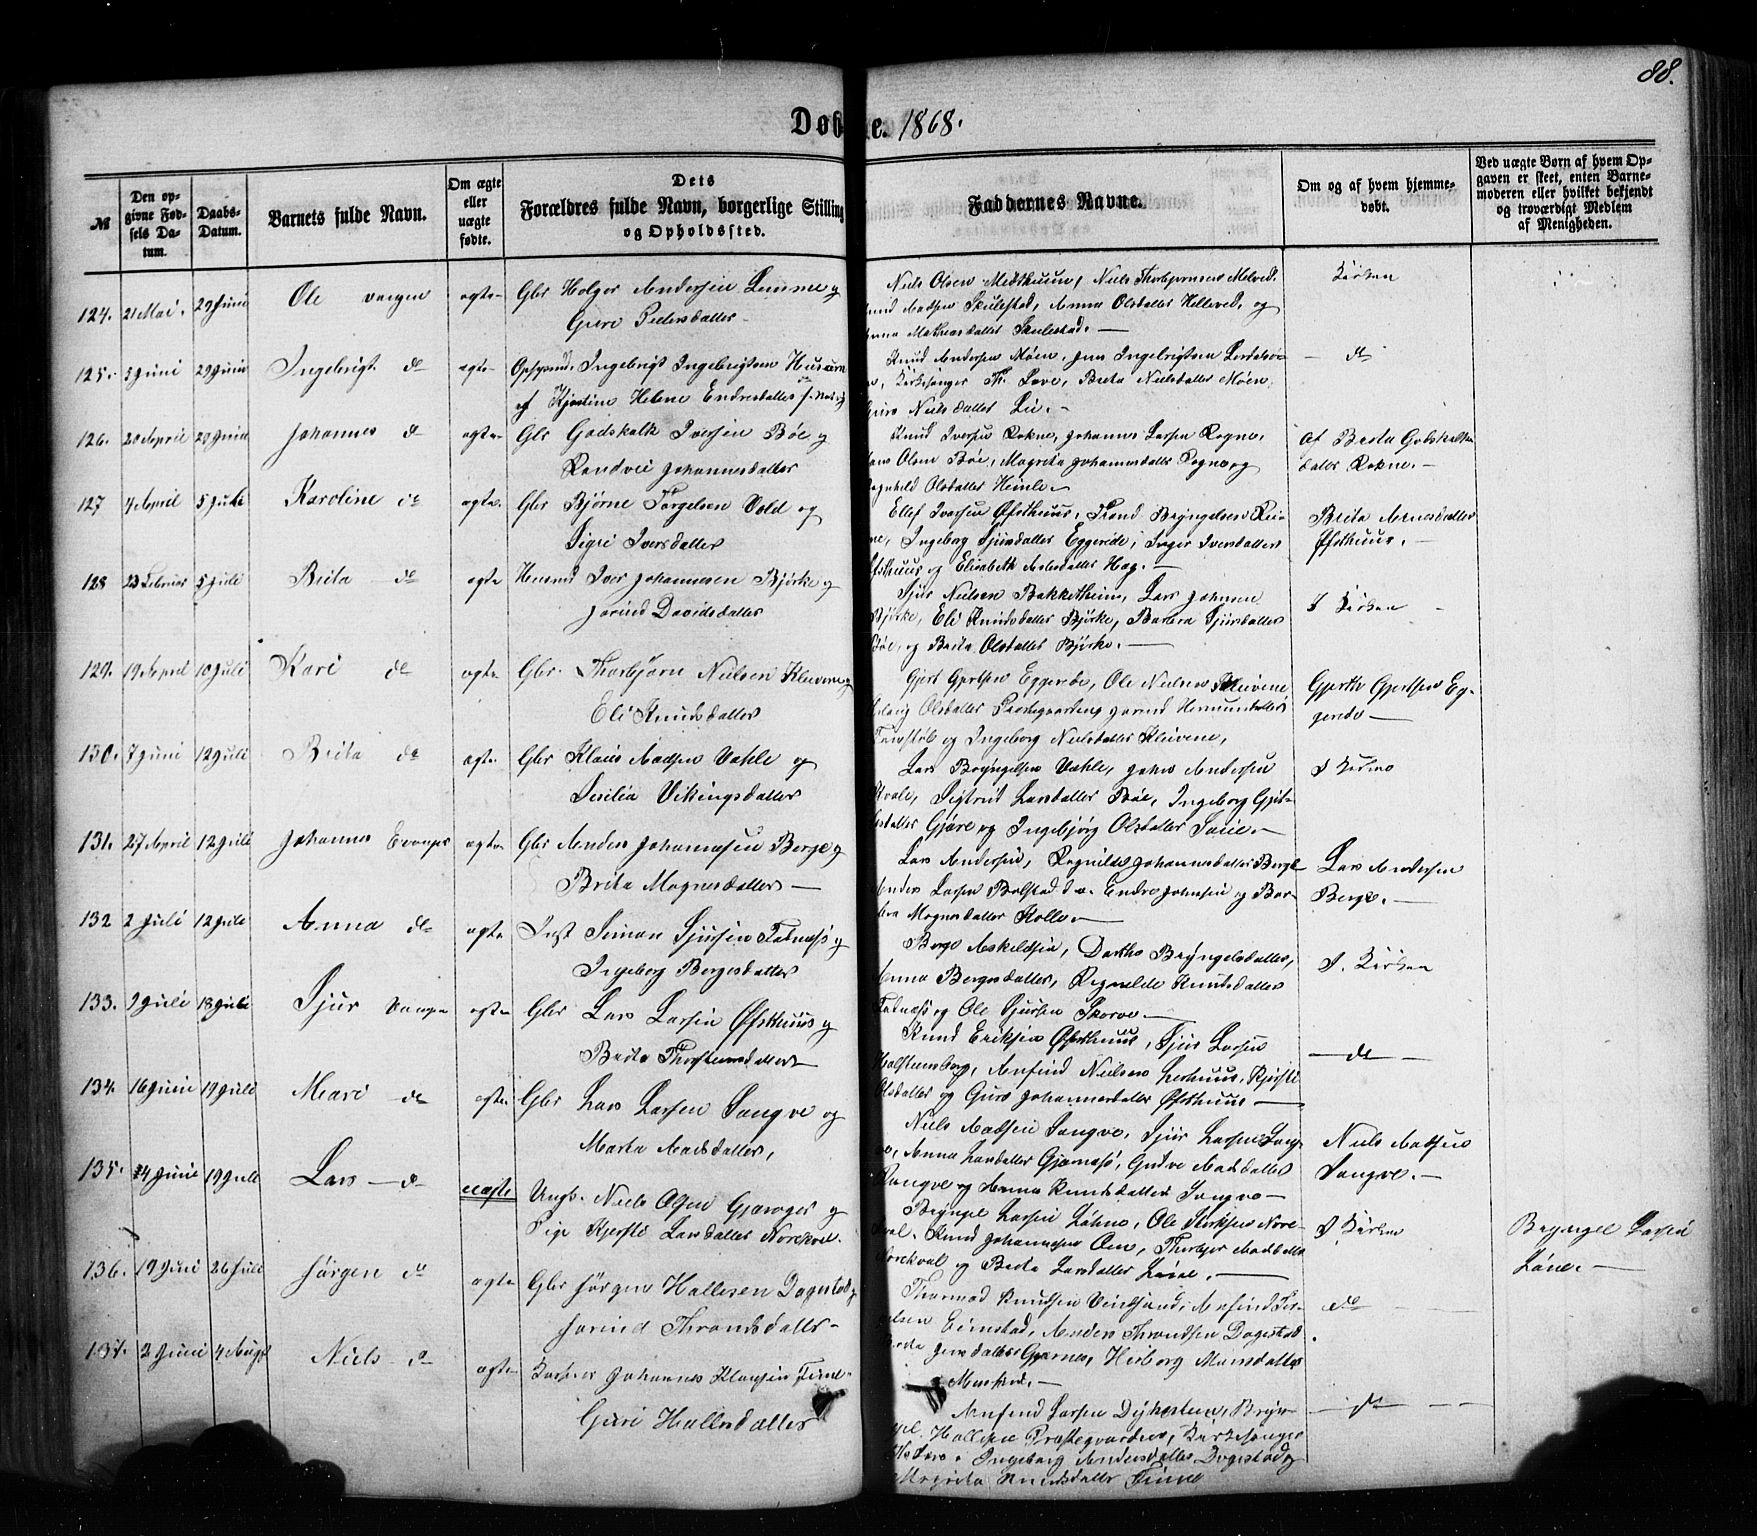 88.
Døbte. 1868.
№
Den opgivne Fødsels Datum.
Daabs-Datum.
Barnets fulde Navn.
Om ægte eller uægte fødte.
Dets Forældres fulde Navn, borgerlige Stilling og Opholdssted.
Faddernes Navne.
Om og af hvem hjemmedøbt.
Ved uægte Børn af hvem Opgaven er skeet, enten Barnemoderen eller hvilket bekjendt og troværdigt Medlem af Menigheden.
124. 21 Mai. 29 Juni Ole vangen ægte Gbr Holger Andersen Lemme og
Guri Pedersdatter
Niels Olsen Midthuun, Niels Thorbjørnsen Melved.
Madsen Skulestad, Anna Olsdatter Helleved, og
Anna Mathiasdatter Skulestad.
Kirken
125. 5 Juni 29 Juni Ingebrigt do ægte Ingebrigt Ingebrigtsen Husum
og Kjerstine Helene Endresdatter
Knud Andersen Møen, Jens Ingebrigtsen
Kirkesanger Th. Løve, Brita Nielsdatter Møen,
Guro Nielsdatter Lie.
do
126. 20 April 29 Juni Johannes do ægte Gbr Godskalk Iversen Bøe og
Randvei Johannesdatter
Knud Iversen Rokne, Johannes Larsen Rogne,
Olsen Bøe, Magrita Johannesdatter Rogne og
Ragnhild Olsdatter Hemle.
Af Brita Godskalksdatter Rokne.
127 4 April 5 Juli Karoline do ægte Gbr Bjørne Torgelsen Vold og
Sigri Iversdatter
Ellef Iversen Øfsthuus, Trond Bryngelsen
Ingeborg Sjursdatter Eggereide, Inger Iversdatter
Øfsthuus og Elisabeth Andersdatter Hæg.
Brita Arnesdatter
Øfsthuus.
128 23 Februar 5 Juli Brita do ægte Husmd Iver Johannesen Bjørke og
Jorind Davidsdatter
Sjur Nielsen Bakketheim, Lars Johnsen
Bjørke, Eli Knudsdatter Bjørke, Barbra Sjursdatter
Bøe, og Brita Olsdatter Bjørke.
I Kirken
129. 19 April 10 Juli Kari do ægte Gbr. Thorbjørn Nielsen Kleivene og
Eli Knudsdatter
Gjert Gjertsen Eggereide, Ole Nielsen Kleivene
Olsdatter Prestegaarden, Jorind Hermundsdatter
og Ingeborg Nielsdatter Kleivene,
Gjerth Gjertsen Eggereide
130. 7 Juni 12 Juli Brita do ægte Gbr Klaus Madsen Væhle og
Sesilia Vikingsdatter
Lars Bryngelsen Væhle, Johns Andersen
Kvale, Sigtrud Larsdatter Bøe, Ingeborg
Gjøre og Ingebjørg Olsdatter
I Kirken
131. 27 April 12 Juli Johannes Evanger ægte Gbr Anders Johannesen Berge og
Brita Magnesdatter
Lars Andersen, Ragnilda Johannesdatter Berge
Anders Larsen Bolstad, Endre Johnsen og
Magnesdatter Kolle.
Lars Andersen
Berge.
132 2 Juli 12 Juli Anna do ægte Inst Simon Sjursen Fadnæs og
Ingeborg Bergesdatter
Berge Askeldsen, Dorthe Bryngelsdatter,
Anna Bergesdatter, Ragnilde Knudsdatter
Fadnæs og Ole Sjursen Skorve.
I. Kirken
133. 9 Juli 18 Juli Sjur Vangen ægte Gbr Lars Larsen Øfsthuus og
Brita Thorsteinsdatter
Knud Eriksen Øfsthuus, Sjur Larsen
Anfind Nielsen Lerhuus, Kjersti
Olsdatter og Guro Johannesdatter Øfsthuus
do
134. 16 Juni 19 Juli Mari do ægte Gbr Lars Larsen Sangve og
Marta Madsdatter,
Niels Madsen Sangve, Sjur Larsen
Anna Larsdatter Gjernæs, Gudve Madsdatter
Sangve og Anna Knudsdatter Sangve
Niels Madsen
Sangve.
135. 24 Juni 19 Juli Lars do uægte Ungk. Niels Olsen Gjerager og
Pige Kjersti Larsdatter Norekval.
Bryngel Larsen Løhne, Ole Størksen
Knud Johannesen Øen, Thorbjør Madsdatter
Norekval og Brita Larsdatter Løne.
I Kirken
Bryngel Larsen
Løne.
136. 19 Juni 26 Juli Jørgen do ægte Gbr Jørgen Hallesen Dagestad og
Jorind Throndsdatter
Thormod Knudsen Vindsand, Anfind
Eimstad, Anders Throndsen Dagestad
Jensdatter Gjernes, Herborg Monsdatter
do
137. 2 Juni 4 Augst Niels do ægte Johannes Klausen Finne
Guri Hallesdatter
Anfind Larsen Dykesten,
Hallesen Præstegaarden, Kirkesanger
Ingeborg Andersdatter Dagestad og
Magrita Knudsdatter Finne
do